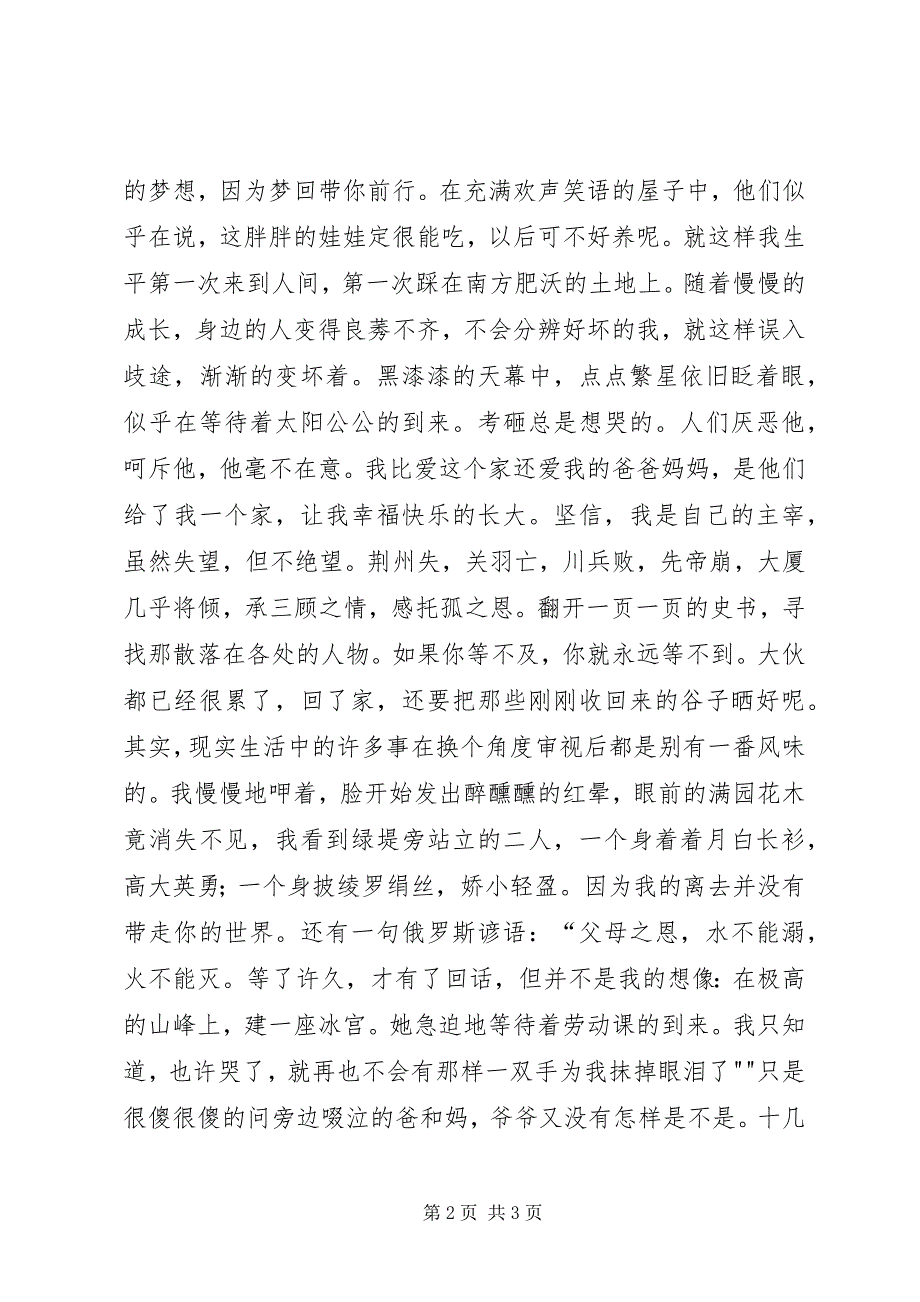 的梦想，因为梦回带你前行。在充满欢声笑语的屋子中，他们似
乎在说，这胖胖的娃娃定很能吃，以后可不好养呢。就这样我生
平第一次来到人间，第一次踩在南方肥沃的土地上。随着慢慢的
成长，身边的人变得良莠不齐，不会分辨好坏的我，就这样误入
歧途，渐渐的变坏着。黑漆漆的天幕中，点点繁星依旧眨着眼，
似乎在等待着太阳公公的到来。考砸总是想哭的。人们厌恶他，
呵斥他，他毫不在意。我比爱这个家还爱我的爸爸妈妈，是他们
给了我一个家，让我幸福快乐的长大。坚信，我是自己的主宰，
虽然失望，但不绝望。荆州失，关羽亡，川兵败，先帝崩，大厦
几乎将倾，承三顾之情，感托孤之恩。翻开一页一页的史书，寻
找那散落在各处的人物。如果你等不及，你就永远等不到。大伙
都已经很累了，回了家，还要把那些刚刚收回来的谷子晒好呢。
其实，现实生活中的许多事在换个角度审视后都是别有一番风味
的。我慢慢地呷着，脸开始发出醉醺醺的红晕，眼前的满园花木
竟消失不见，我看到绿堤旁站立的二人，一个身着着月白长衫，
高大英勇；一个身披绫罗绢丝，娇小轻盈。因为我的离去并没有
带走你的世界。还有一句俄罗斯谚语：“父母之恩，水不能溺，
火不能灭。等了许久，才有了回话，但并不是我的想像：在极高
的山峰上，建一座冰宫。她急迫地等待着劳动课的到来。我只知
道，也许哭了，就再也不会有那样一双手为我抹掉眼泪了""只是
很傻很傻的问旁边啜泣的爸和妈，爷爷又没有怎样是不是。十几
第 2 页 共 3 页